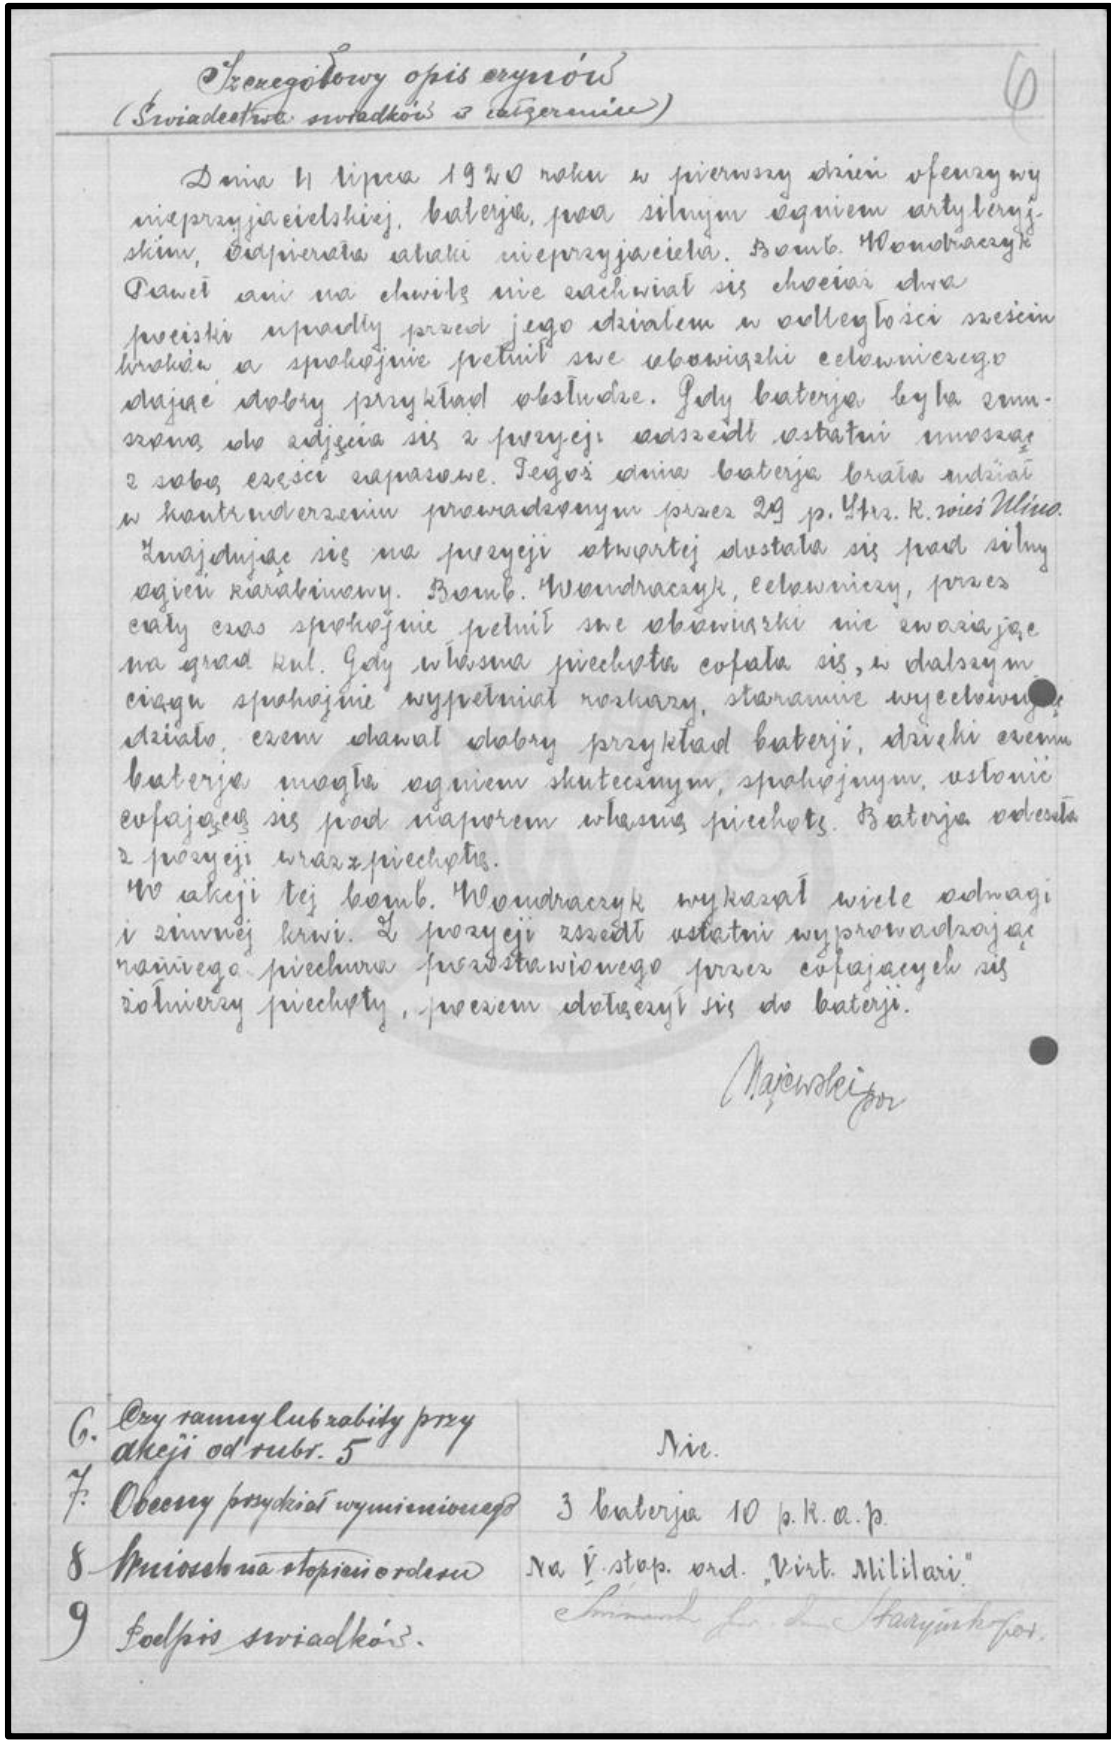 Szczegółowy opis czynów
(Świadectwa swiadków i
6
Dnia 4 lipca 1920 roku w pierwszy dzień ofenzywy
nieprzyjacielskiej, baterja, pod silnym ogniem artyleryj-
skim, odpierała ataki nieprzyjaciela. Bomb. Wondraczyk
Paweł ani na chwilę nie zachwiał się chociaż dwa
pociski upadły przed jego działem w odległości sześciu
kroków, a spokojnie pełnił swe obowiązki celowniczego
dając dobry przykład obsłudze. Gdy baterja była zmu-
szoną do zdjęcia się z pozycji odszedł ostatni unosząc
z sobą części zapasowe. Tegoż dnia baterja brała udział
w kontruderzeniu prowadzonym przez 29 p. Strz. K. wieś Ulino.
Znajdując się na pozycji otwartej dostała się pod silny
ogień karabinowy. Bomb. Wondraczyk, celowniczy, przez
cały czas spokojnie pełnił swe obowiązki nie zważając
na grad kul. Gdy własna piechota cofała się, w dalszym
ciągu spokojnie wypełniał rozkazy, starannie wycelowując
działo, czem dawał dobry przykład baterji, dzięki czemu
baterja mogła ogniem skutecznym, spokojnym, osłonić
cofającą się pod naporem własną piechotę. Baterja odeszła
z pozycji wraz z piechotą.
W akcji tej bomb. Wondraczyk wykazał wiele odwagi
i zimnej krwi. Z pozycji zszedł ostatni wyprowadzając
rannego piechura pozostawionego przez cofających się
żołnierzy piechoty, poczem dołączył się do baterji.
Majewski por
6. Czy ranny lub zabity przy
akcji od rubr. 5
Nie.
7. Obecny przydział wymienionego
3 baterja 10 p. k. a. p.
8 Wniosek na stopień orderu
Na V. stop. ord. „Virt. Militari."
9 Podpis swiadków.
por.